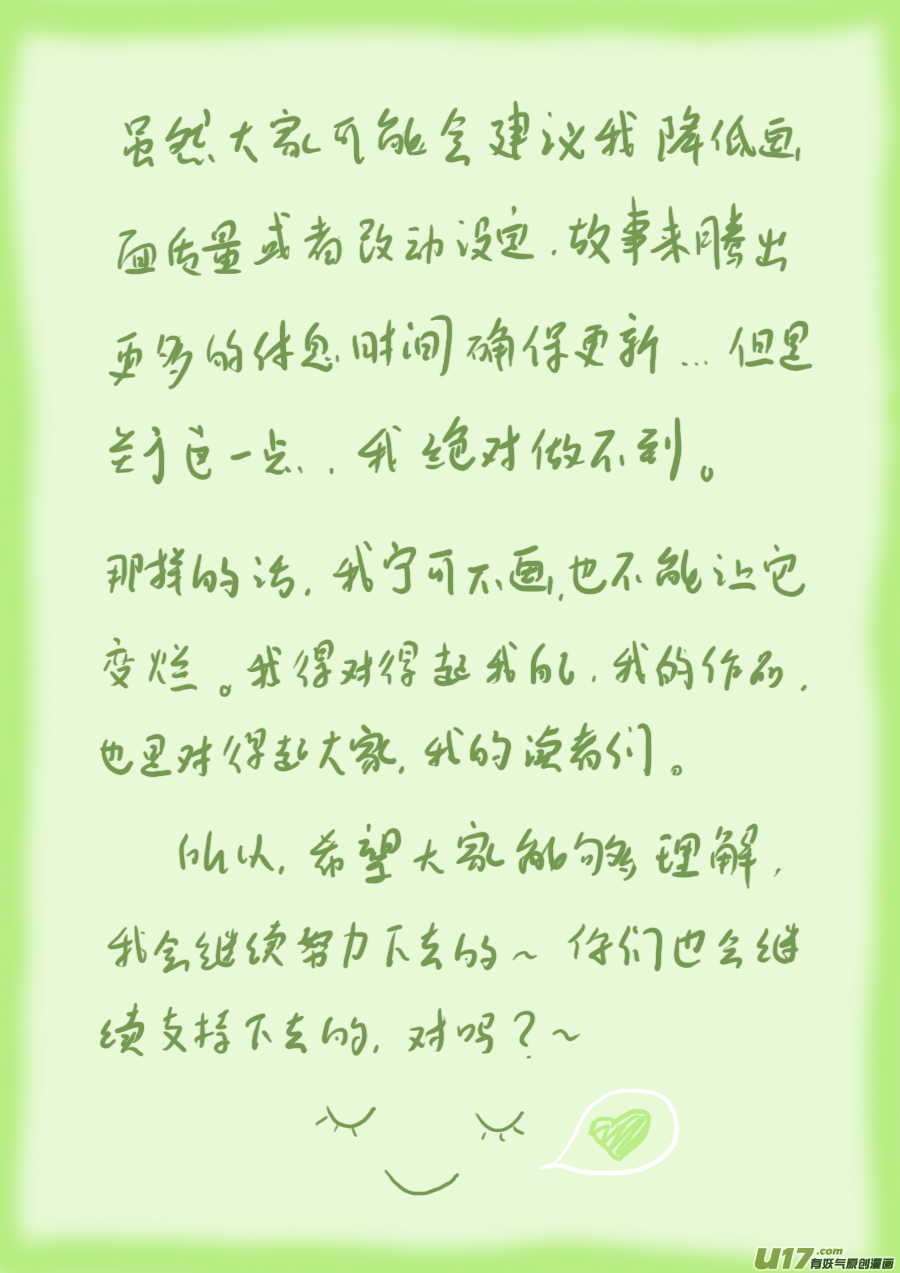 虽然大家可能会建议我降低画
面质量或者改动设定,故事来腾出
更多的休息时间确保更新…但是
关于这一点,我绝对做不到。
那样的话,我宁可不画,也不能让它
变烂。我得对得起我自己,我的作品,
也是对得起大家,我的读者们。
所以,希望大家能够理解,
我会继续努力下去的~你们也会继
续支持下去的,对吗?~
U17.com
有妖气原创漫画